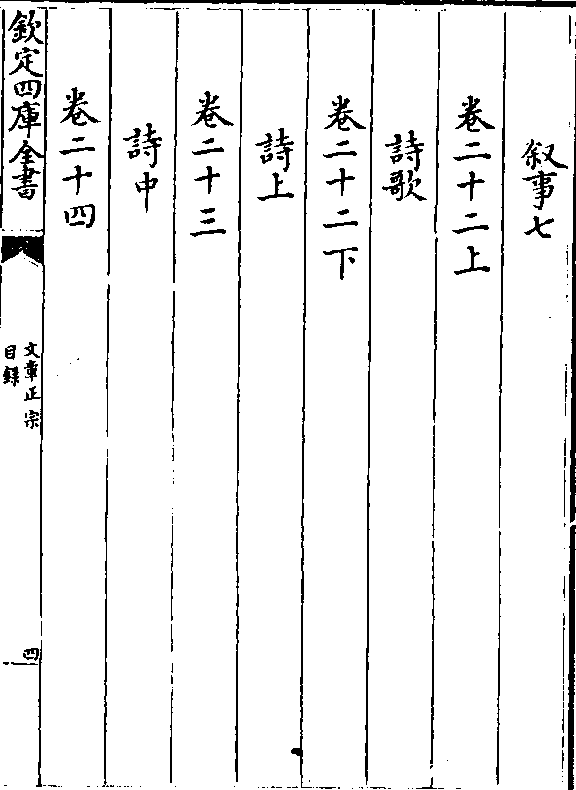 叙事七
卷二十二上
詩歌
卷二十二下
詩上
卷二十三
詩中
卷二十四
欽定四庫全書
文章正宗
目錄
四